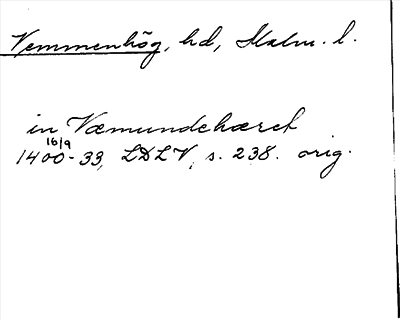 Vemmenhög, hd, Malm. l.
in Væmundehæret
16/9
1400-33, LDLV, s. 238. orig.